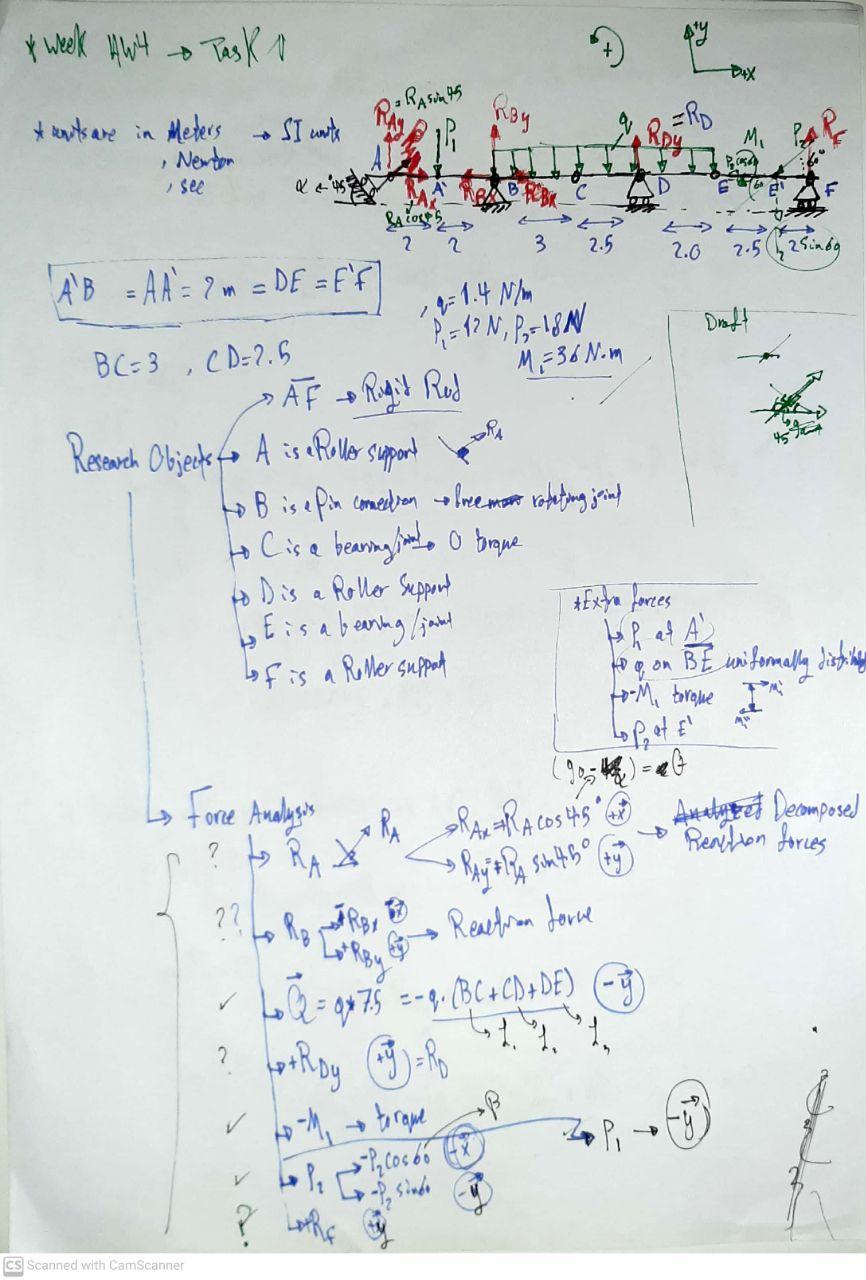 * week HW4 → Task 1
+
+y
+x
* units are in Meters → SI units
, Newton
, sec
= RA sin 45
RAy
P1
RBy
q
RDy
= RD
M1
P2
RF
60°
A
α
45
RAx
RA cos 45
A'
RBx
B
RBx
C
D
E
P2 cos 60
60
E'
F
2
2
3
2.5
2.0
2.5
2
P2 sin 60
A'B = AA' = 2m = DE = E'F
, q = 1.4 N/m
P1 = 12 N, P2 = 18 N
M1 = 36 N.m
BC = 3 , CD = 2.5
Draft
45
AF → Rigid Rod
Research Objects → A is a Roller support
RA
→ B is a Pin connection → free rotating joint
→ C is a bearing/joint → 0 torque
→ D is a Roller Support
→ E is a bearing/joint
→ F is a Roller support
* Extra forces
→ P1 at A'
→ q on BE uniformally distributed
→ -M1 torque
→ P2 at E'
→ Force Analysis
? → RA
RA
→ RAx = RA cos 45° +x
→ RAy = RA sin 45° +y
→ Decomposed
Reaction forces
?? → RB
RBx
+RBy +y
→ Reaction force
✓ → Q = q*7.5 = -q.(BC+CD+DE) -y
? → +RDy +y = RD
✓ → -M1 → torque
β
→ P1 → -y
✓ → P2
-P2 cos 60 -x
-P2 sin 60 -y
? +RF +y
CS Scanned with CamScanner